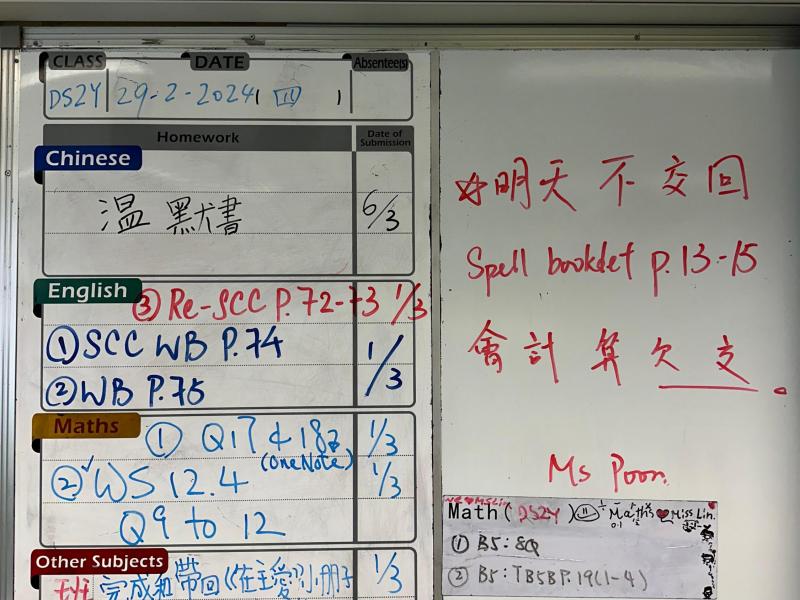 CLASS DATE Absentee(s)
DS2Y 29-2-2024 (四)
Homework Date of Submission
Chinese
温 默書 6/3
English
③ Re-SCC P.72-73 1/3
① SCC WB P.74 1/3
② WB P.75
Maths
① Q17 & 18 1/3
(OneNote)
② WS 12.4 1/3
Q9 to 12
Other Subjects
完成和帶回《《在主愛》小冊子 1/3
☆明天不交回
Spell booklet p.13-15
會計算欠交。
Ms Poon
we ❤ Ms Lin
Math (DS2Y) Maths ❤ Miss Lin.
① B5: 8Q
② B5: TB5B P.19 (1-4)